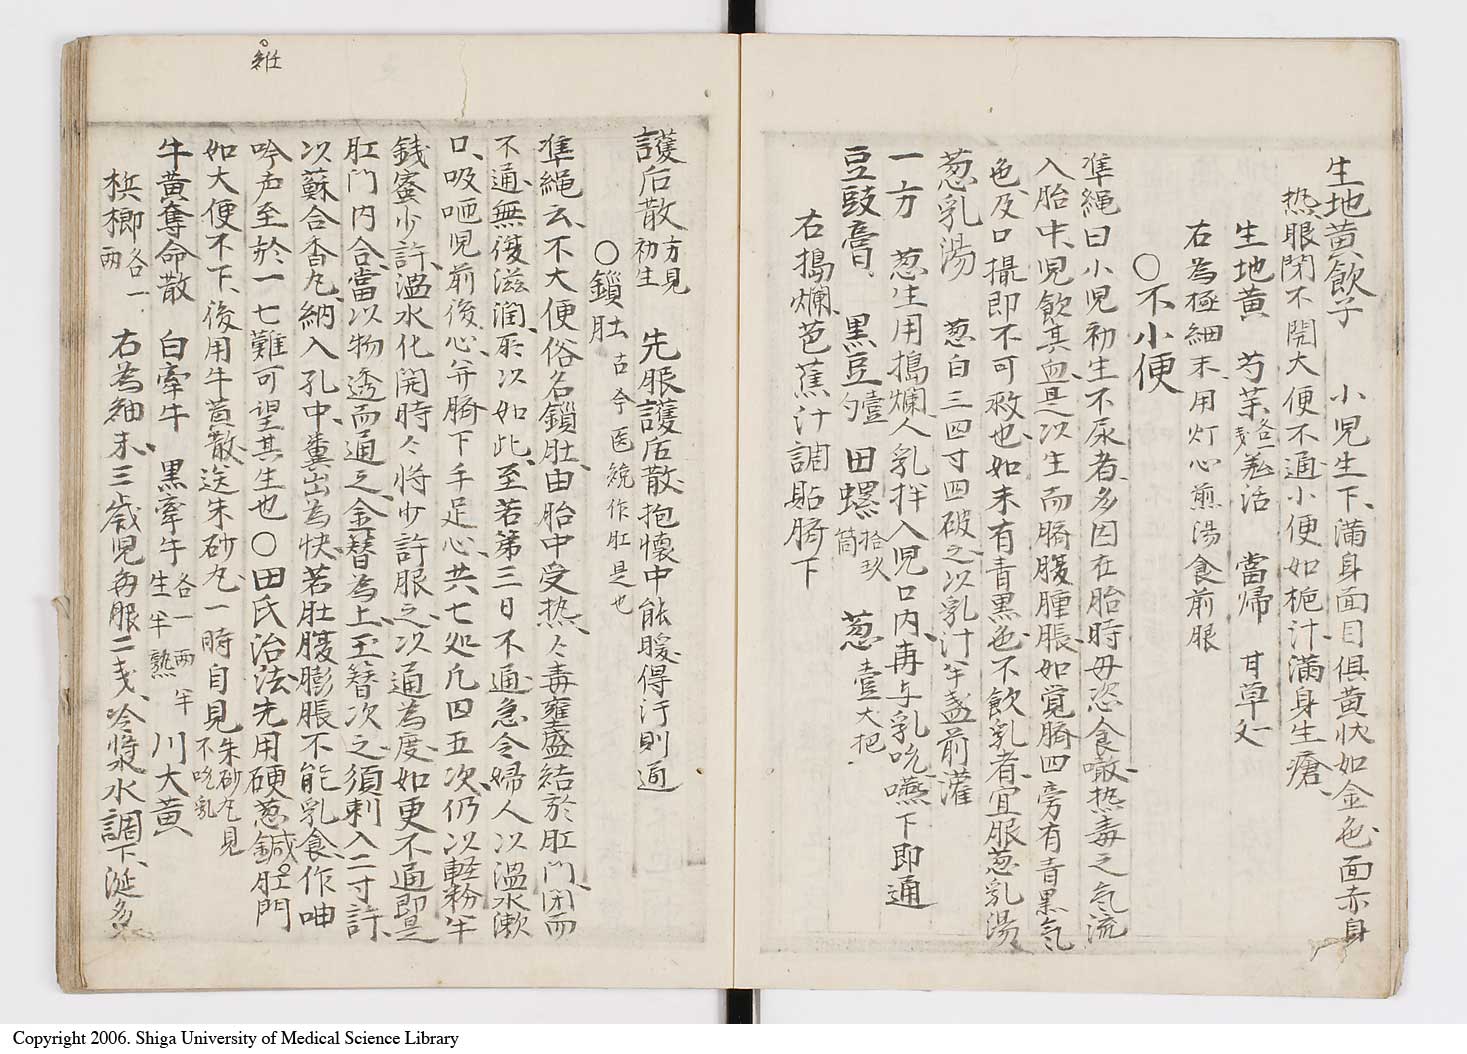 生地黄飲子　小児生下、満身面目俱黄状如金色、面赤身
热眼閉不開大便不通小便如梔汁、満身生瘡、
生地黄　芍薬　各戔　羗活　當帰　甘草 一戈
右為極細末、用灯心煎湯食前服
〇不小便
準縄曰小児初生不尿者、多因在胎時母恣食噉热毒之氣流
入胎中、児飲其血是以生而臍腹腫脹如覚臍四旁有青黒氣
色及口撮即不可救也、如未有青黒色不飲乳者、宜服葱乳湯
葱乳湯　葱白三四寸四破之以乳汁半盞前灌
一方　葱生用搗爛人乳拌入児口内、再与乳吮嚥下即通
豆豉膏　黒豆 壹勺　田螺 拾玖筒　葱 壹大把
右搗爛、芭蕉汁調貼臍下
護后散 方見初生　先服護后散抱懐中能暖得汗則通
〇鎖肚 古今医統作肛是也
準縄云、不大便俗名鎖肚、由胎中受热、々毒壅盛結於肛門、閉而
不通、無復滋潤、所以如此、至若第三日不通、急令婦人以温水漱
口、吸咂児前後心并臍下手足心、共七処凡四五次、仍以軽粉半
錢蜜少許、温水化開時々将少許服之、以通為度、如更不通即是
肛門内合、當以物透而通之、金簪為上、玉簪次之、須刺入二寸許、
以蘇合香丸、納入孔中、糞出為快、若肚腹膨脹不能乳食、作呻
吟声至於一七難可望其生也〇田氏治法先用硬葱鍼肛門
如大便不下、後用牛黄散、送朱砂丸、一時自見 朱砂丸見不吮乳
牛黄奪命散　白牽牛　黒牽牛 各一両半生半熟　川大黄
梹榔 各一両　右為細末、三歳児毎服二戔、冷漿水調下、涎多
雑
Copyright 2006. Shiga University of Medical Science Library